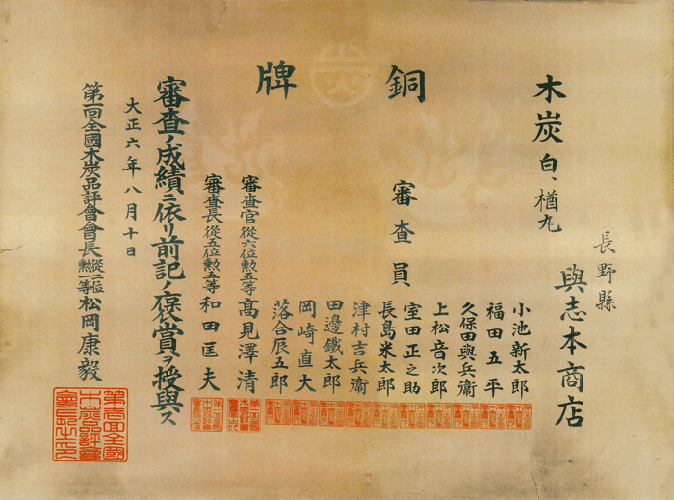 木炭 白、楢丸
長野縣
與志本商店
銅牌
審査員
小池新太郎
福田五平
久保田與兵衛
上松音次郎
室田正之助
長島米太郎
津村吉兵衛
田邊鐵太郎
岡崎直大
落合辰五郎
審査官從六位勲五等 高見澤清
審査長從五位勲五等 和田匡夫
審査ノ成績ニ依リ前記ノ褒賞ヲ授與ス
大正六年八月十日
第一回全國木炭品評會會長 從二位勲一等 松岡康毅